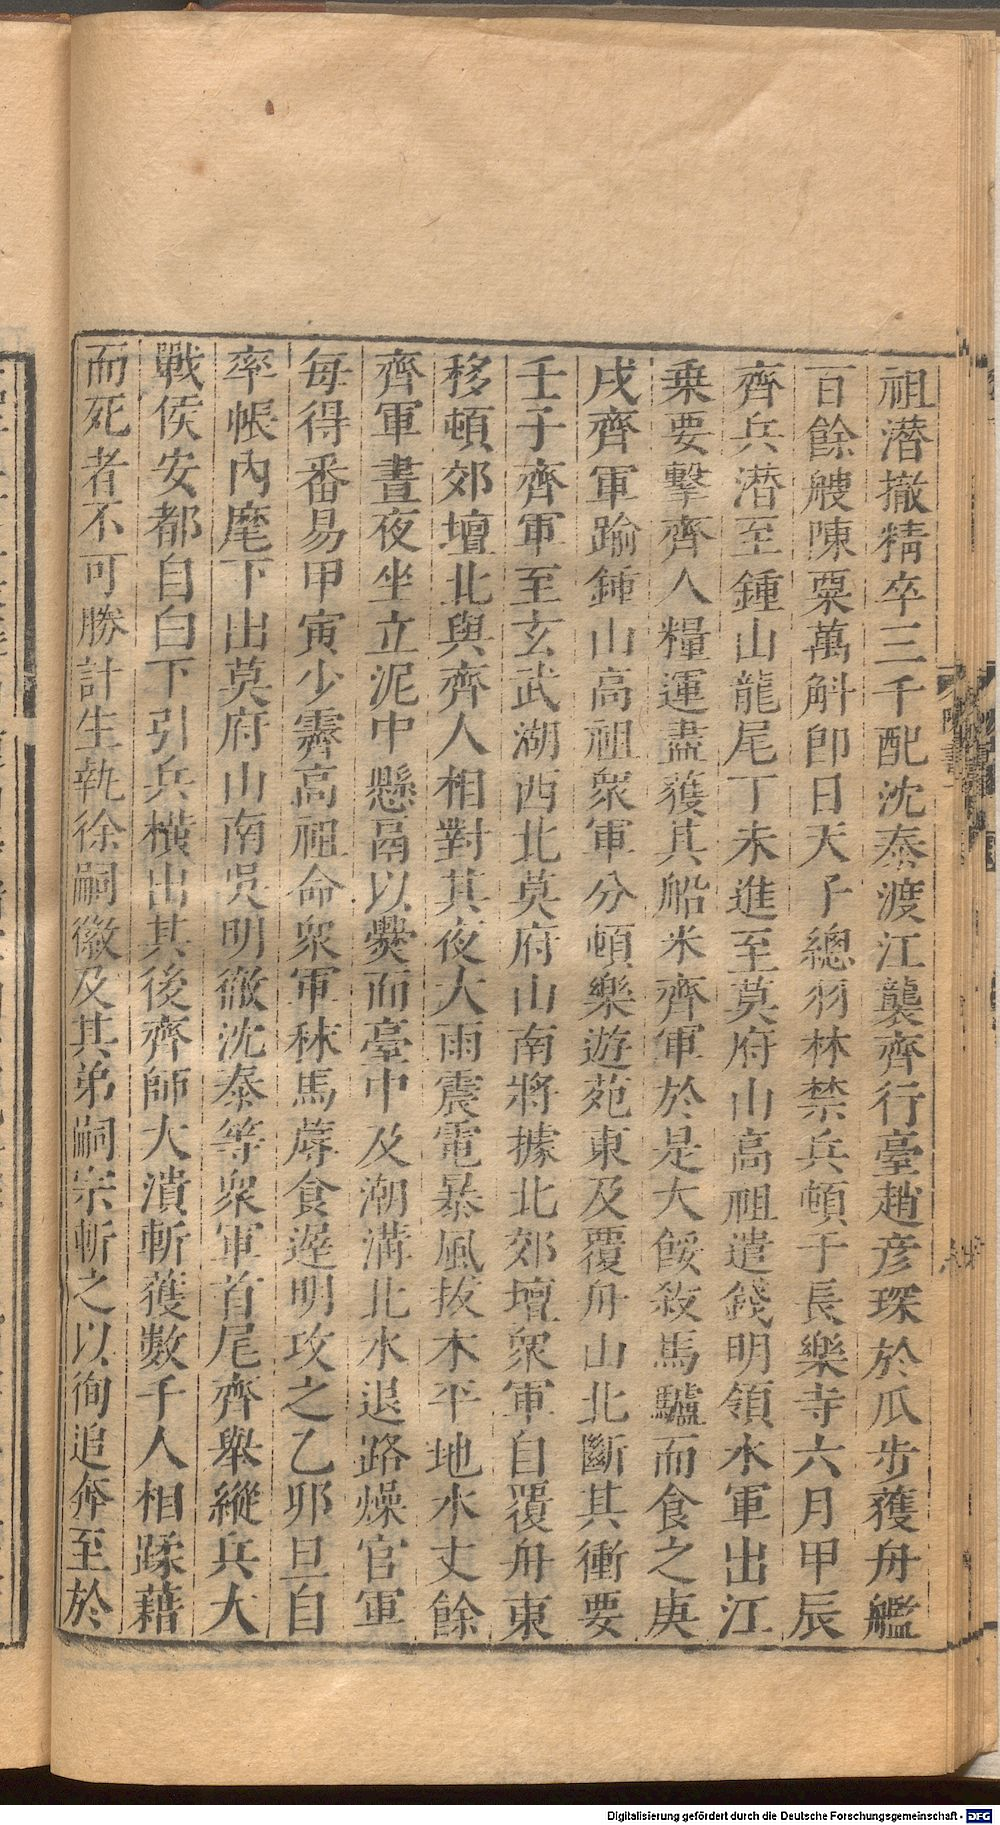 祖潛撤精卒三千配沈泰渡江襲齊行臺趙彥琛於瓜步獲舟艦
百餘艘陳粟萬斛即日天子總羽林禁兵頓于長樂寺六月甲辰
齊兵潛至鍾山龍尾丁未進至莫府山高祖遣錢明領水軍出江
乘要擊齊人糧運盡獲其船米齊軍於是大餒殺馬驢而食之庚
戌齊軍踰鍾山高祖衆軍分頓樂遊苑東及覆舟山北斷其衝要
壬子齊軍至玄武湖西北莫府山南將據北郊壇衆軍自覆舟東
移頓郊壇北與齊人相對其夜大雨震電暴風拔木平地水丈餘
齊軍晝夜坐立泥中懸鬲以爨而臺中及潮溝北水退路燥官軍
每得番易甲寅少霽高祖命衆軍秣馬蓐食遲明攻之乙卯旦自
率帳內麾下出莫府山南吳明徹沈泰等衆軍首尾齊舉縱兵大
戰侯安都自白下引兵橫出其後齊師大潰斬獲數千人相蹂藉
而死者不可勝計生執徐嗣徽及其弟嗣宗斬之以徇追奔至於
Digitalisierung gefördert durch die Deutsche Forschungsgemeinschaft - DFG